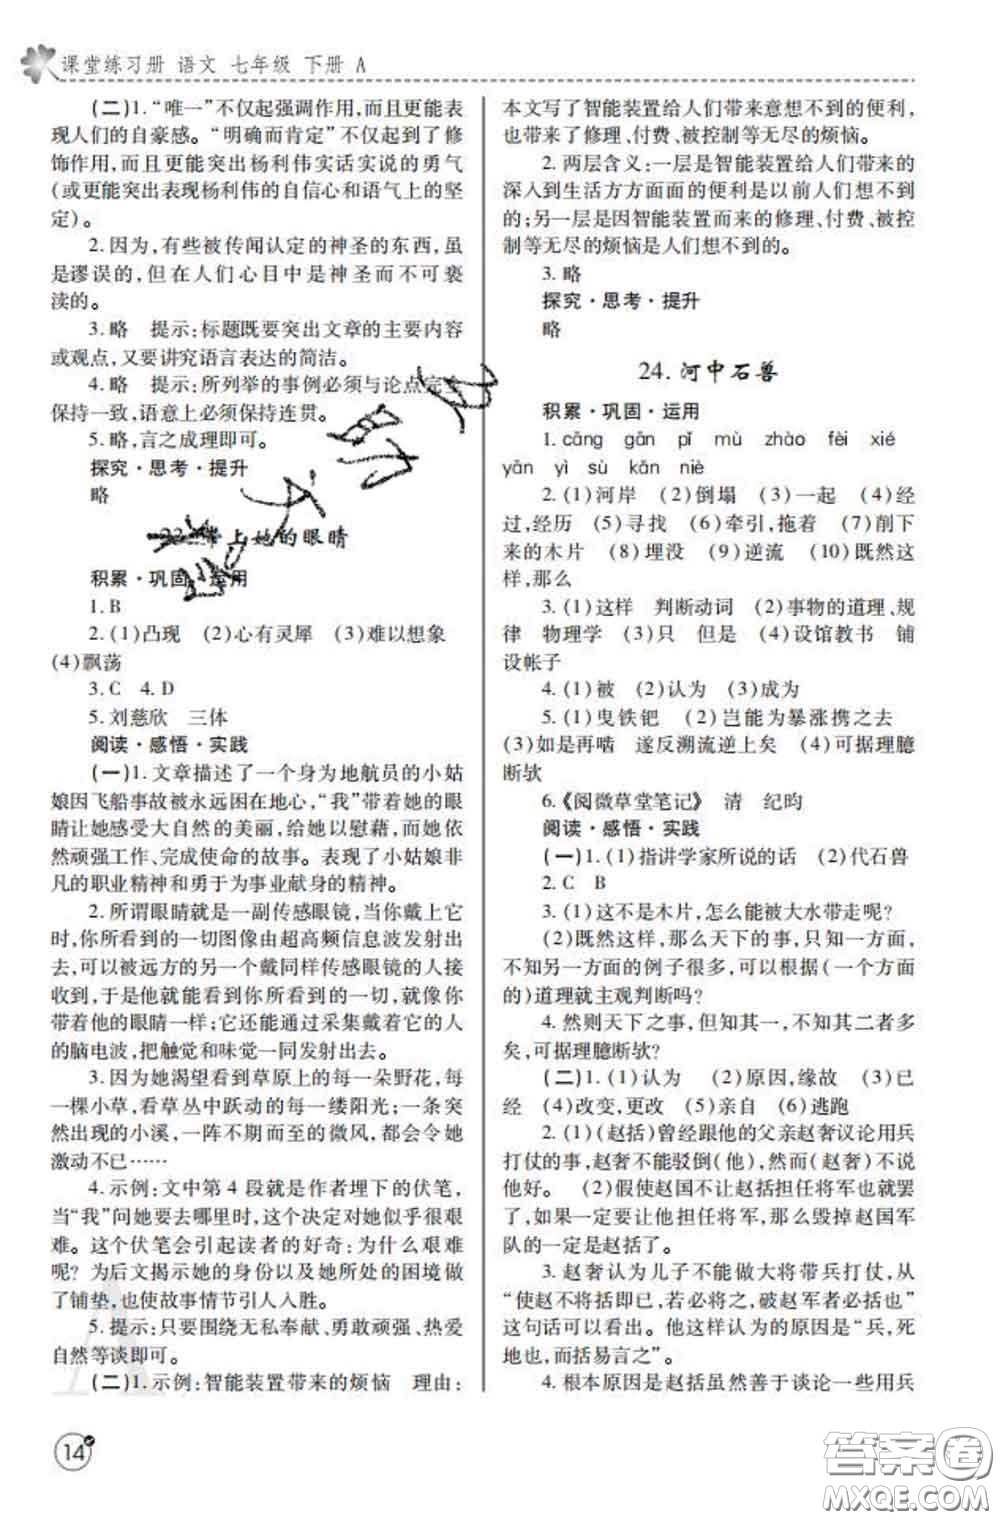 课堂练习册 语文 七年级 下册 A
(二)1.“唯一”不仅起强调作用,而且更能表
现人们的自豪感。“明确而肯定”不仅起到了修
饰作用,而且更能突出杨利伟实话实说的勇气
(或更能突出表现杨利伟的自信心和语气上的坚
定)。
2.因为,有些被传闻认定的神圣的东西,虽
是谬误的,但在人们心目中是神圣而不可亵
渎的。
3.略 提示:标题既要突出文章的主要内容
或观点,又要讲究语言表达的简洁。
4.略 提示:所列举的事例必须与论点完全
保持一致,语意上必须保持连贯。
5.略,言之成理即可。
探究·思考·提升
略
上她的眼睛
积累·巩固·运用
1.B
2.(1)凸现 (2)心有灵犀 (3)难以想象
(4)飘荡
3.C 4.D
5.刘慈欣 三体
阅读·感悟·实践
(一)1.文章描述了一个身为地航员的小姑
娘因飞船事故被永远困在地心,“我”带着她的眼
睛让她感受大自然的美丽,给她以慰藉,而她依
然顽强工作、完成使命的故事。表现了小姑娘非
凡的职业精神和勇于为事业献身的精神。
2.所谓眼睛就是一副传感眼镜,当你戴上它
时,你所看到的一切图像由超高频信息波发射出
去,可以被远方的另一个戴同样传感眼镜的人接
收到,于是他就能看到你所看到的一切,就像你
带着他的眼睛一样;它还能通过采集戴着它的人
的脑电波,把触觉和味觉一同发射出去。
3.因为她渴望看到草原上的每一朵野花,每
一棵小草,看草丛中跃动的每一缕阳光;一条突
然出现的小溪,一阵不期而至的微风,都会令她
激动不已……
4.示例:文中第4段就是作者埋下的伏笔,
当“我”问她要去哪里时,这个决定对她似乎很艰
难。这个伏笔会引起读者的好奇:为什么艰难
呢?为后文揭示她的身份以及她所处的困境做
了铺垫,也使故事情节引人入胜。
5.提示:只要围绕无私奉献、勇敢顽强、热爱
自然等谈即可。
(二)1.示例:智能装置带来的烦恼 理由:
本文写了智能装置给人们带来意想不到的便利,
也带来了修理、付费、被控制等无尽的烦恼。
2.两层含义:一层是智能装置给人们带来的
深入到生活方方面面的便利是以前人们想不到
的;另一层是因智能装置而来的修理、付费、被控
制等无尽的烦恼是人们想不到的。
3.略
探究·思考·提升
略
24.河中石兽
积累·巩固·运用
1.cāng gān pǐ mù zhào fèi xié
yān yì sù kǎn niè
2.(1)河岸 (2)倒塌 (3)一起 (4)经
过,经历 (5)寻找 (6)牵引,拖着 (7)削下
来的木片 (8)埋没 (9)逆流 (10)既然这
样,那么
3.(1)这样 判断动词 (2)事物的道理、规
律 物理学 (3)只 但是 (4)设馆教书 铺
设帐子
4.(1)被 (2)认为 (3)成为
5.(1)曳铁钯 (2)岂能为暴涨携之去
(3)如是再啮 遂反溯流逆上矣 (4)可据理臆
断欤
6.《阅微草堂笔记》 清 纪昀
阅读·感悟·实践
(一)1.(1)指讲学家所说的话 (2)代石兽
2.C B
3.(1)这不是木片,怎么能被大水带走呢?
(2)既然这样,那么天下的事,只知一方面,
不知另一方面的例子很多,可以根据(一个方面
的)道理就主观判断吗?
4.然则天下之事,但知其一,不知其二者多
矣,可据理臆断欤?
(二)1.(1)认为 (2)原因,缘故 (3)已
经 (4)改变,更改 (5)亲自 (6)逃跑
2.(1)(赵括)曾经跟他的父亲赵奢议论用兵
打仗的事,赵奢不能驳倒(他),然而(赵奢)不说
他好。 (2)假使赵国不让赵括担任将军也就罢
了,如果一定要让他担任将军,那么毁掉赵国军
队的一定是赵括了。
3.赵奢认为儿子不能做大将带兵打仗,从
“使赵不将括即已,若必将之,破赵军者必括也”
这句话可以看出。他这样认为的原因是“兵,死
地也,而括易言之”。
4.根本原因是赵括虽然善于谈论一些用兵
14
答案圈
MXQE.COM